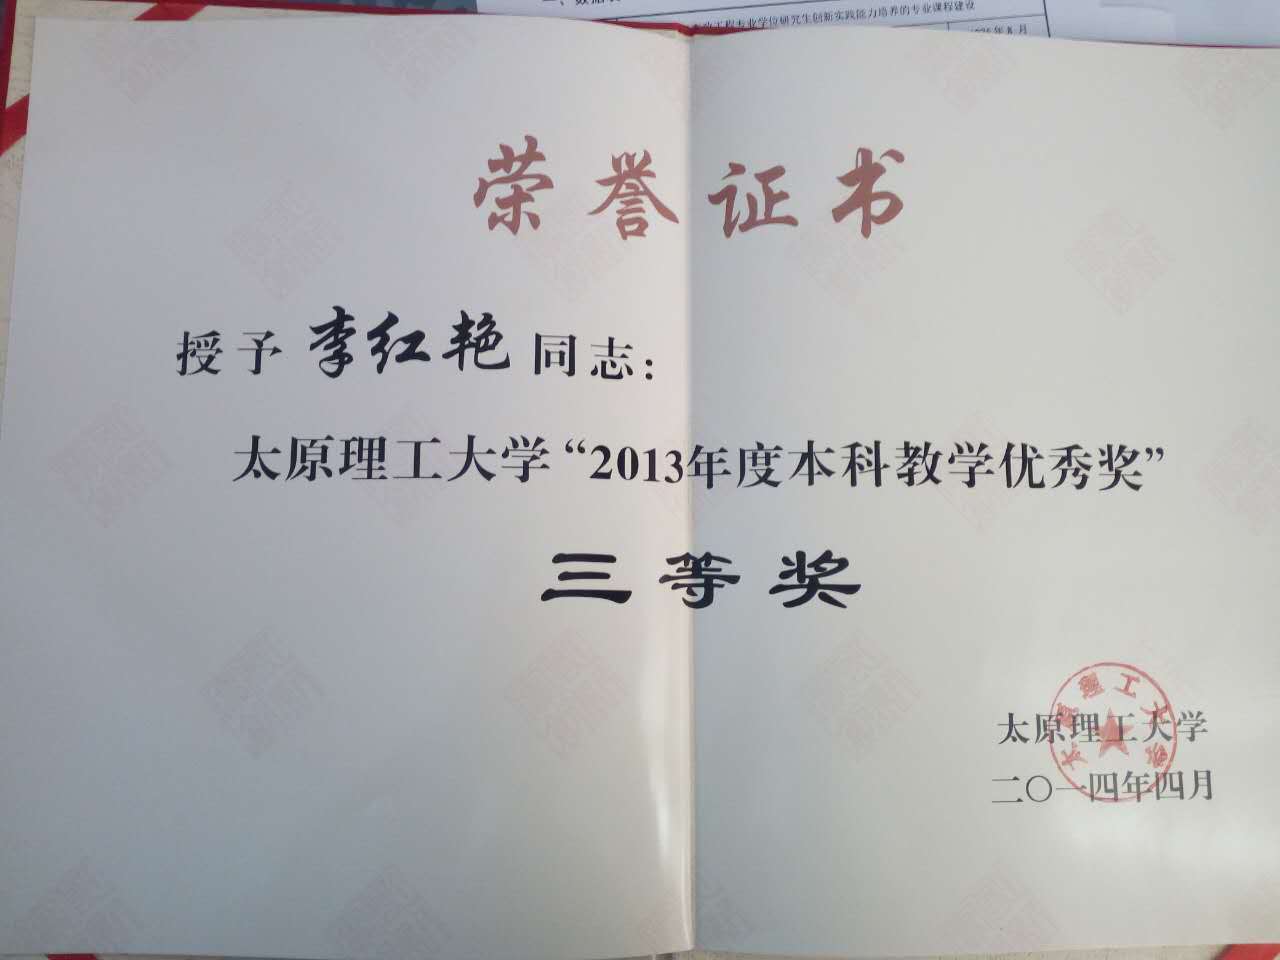 一、数据
工程专业学位研究生创新实践能力培养的专业课程建设
年8月
荣誉证书
授予 李红艳 同志：
太原理工大学“2013年度本科教学优秀奖”
三等奖
太原理工大学
太原理工大学
二〇一四年四月